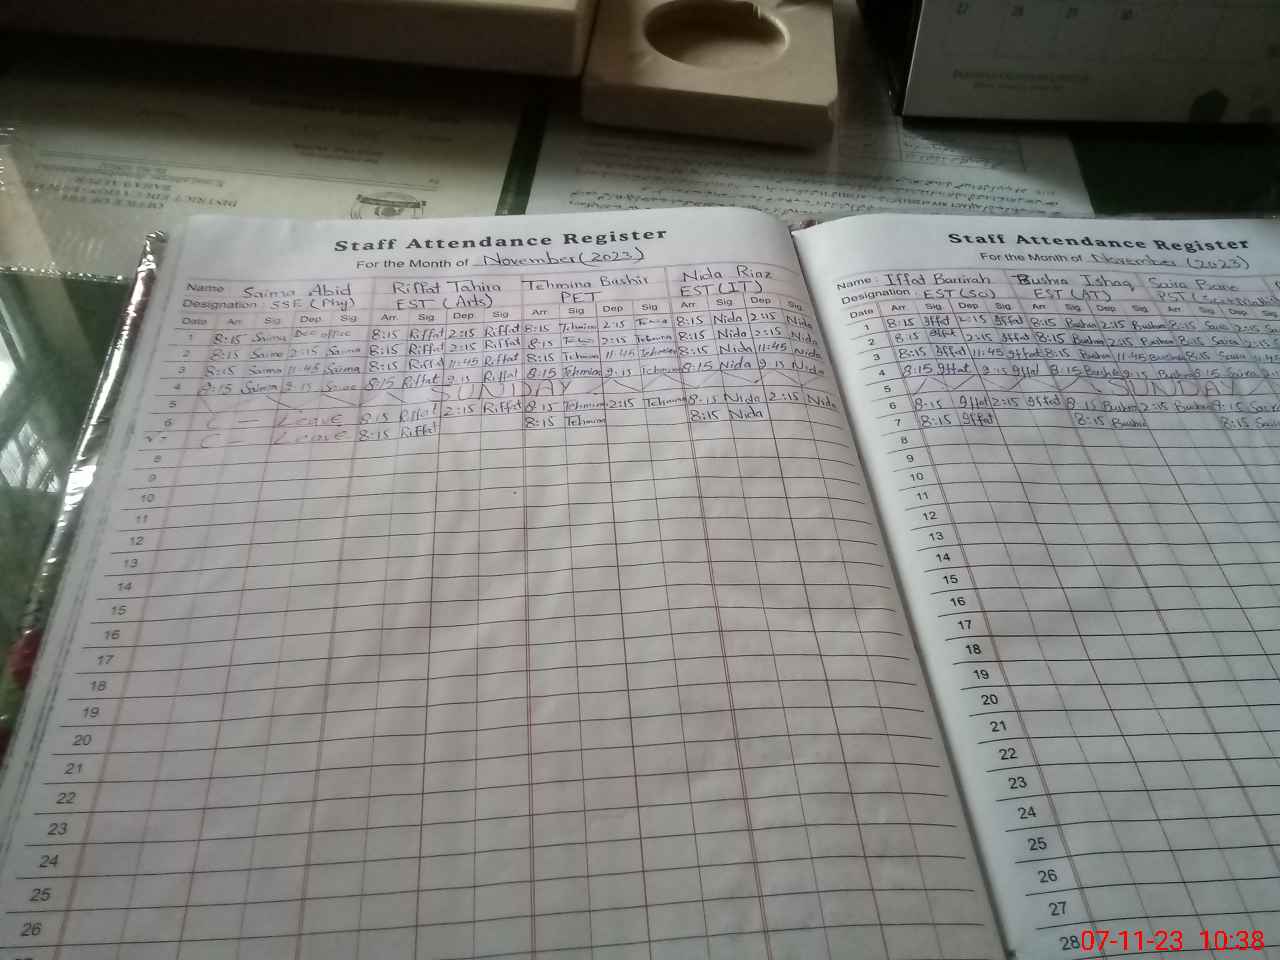 27 28 29 30
OFFICE OF THE
DISTRICT EDUCATION
Staff Attendance Register
For the Month of November (2023)
Name Saima Abid Riffat Tahira Tehmina Bashir Nida Riaz
Designation : SSE (Phy) EST (Arts) PET EST (IT)
Date Arr Sig Dep Sig Arr Sig Dep Sig Arr Sig Dep Sig Arr Sig Dep Sig
1 8:15 Saima office 8:15 Riffat 2:15 Riffat 8:15 Tehmina 2:15 8:15 Nida 2:15 Nida
2 8:15 Saima 2:15 Saima 8:15 Riffat 2:15 Riffat 8:15 2:15 Tehmina 8:15 Nida 2:15 Nida
3 8:15 Saima 11:45 Saima 8:15 Riffat 11:45 Riffat 8:15 Tehmina 11:45 Tehmina 8:15 Nida 11:45 Nida
4 8:15 Saima 2:15 8:15 Riffat 2:15 Riffat 8:15 Tehmina 2:15 Tehmina 8:15 Nida 2:15 Nida
5 SUNDAY
6 C - Leave 8:15 Riffat 2:15 Riffat 8:15 Tehmina 2:15 Tehmina 8:15 Nida 2:15 Nida
C - Leave 8:15 Riffat 8:15 Tehmina 8:15 Nida
8
9
10
11
12
13
14
15
16
17
18
19
20
21
22
23
24
25
26
Staff Attendance Register
For the Month of November (2023)
Name : Iffat Bushra Ishaq Saira
Designation : EST (Sci) EST (AT) PST
Date Arr Sig Dep Sig Arr Sig Dep Sig Arr Sig Dep Sig
1 8:15 Iffat 2:15 Iffat 8:15 Bushra 2:15 Bushra 8:15 Saira 2:15
2 8:15 Iffat 2:15 Iffat 8:15 Bushra 2:15 Bushra 8:15 Saira 2:15
3 8:15 Iffat 11:45 Iffat 8:15 Bushra 11:45 Bushra 8:15 Saira 11:45
4 8:15 Iffat 2:15 Iffat 8:15 Bushra 2:15 Bushra 8:15 Saira
5 SUNDAY
6 8:15 Iffat 2:15 Iffat 8:15 Bushra 2:15 Bushra 8:15 Saira
7 8:15 Iffat 8:15 Bushra 8:15
8
9
10
11
12
13
14
15
16
17
18
19
20
21
22
23
24
25
26
27
28
07-11-23 10:38